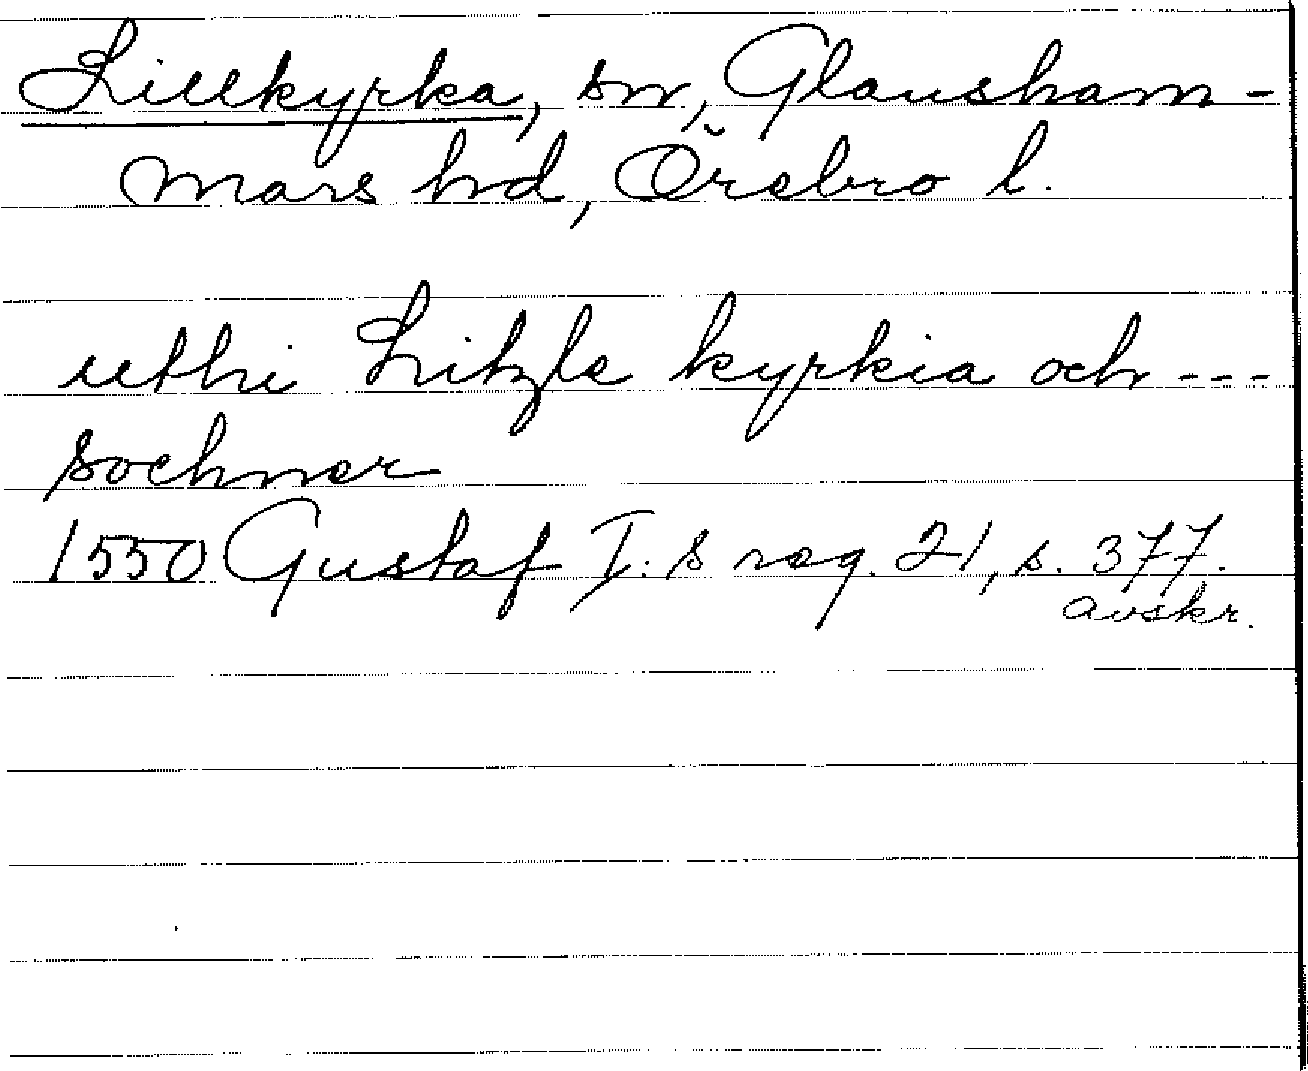 Lillkyrka, sn, Glansham-
mars hd, Örebro l.
uthi Litzle kyrkia och ---
sochner
1550 Gustaf I:s reg. 21, s. 377.
avskr.